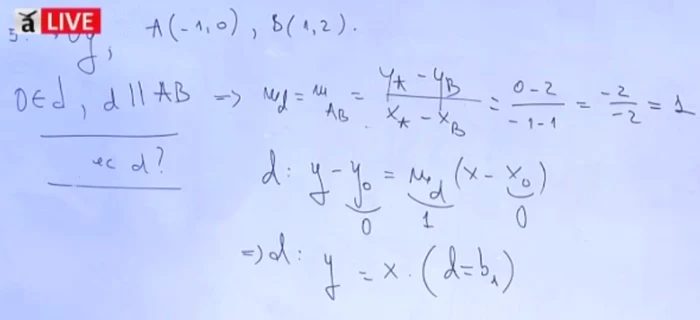 ă LIVE
5. y, A(-1,0), B(1,2).
O∈d, d || AB => m_d = m_AB = (y_A - y_B)/(x_A - x_B) = (0-2)/(-1-1) = -2/-2 = 1
ec d?
d: y - y_0 = m_d (x - x_0)
0 1 0
=> d: y = x. (d = b_1)